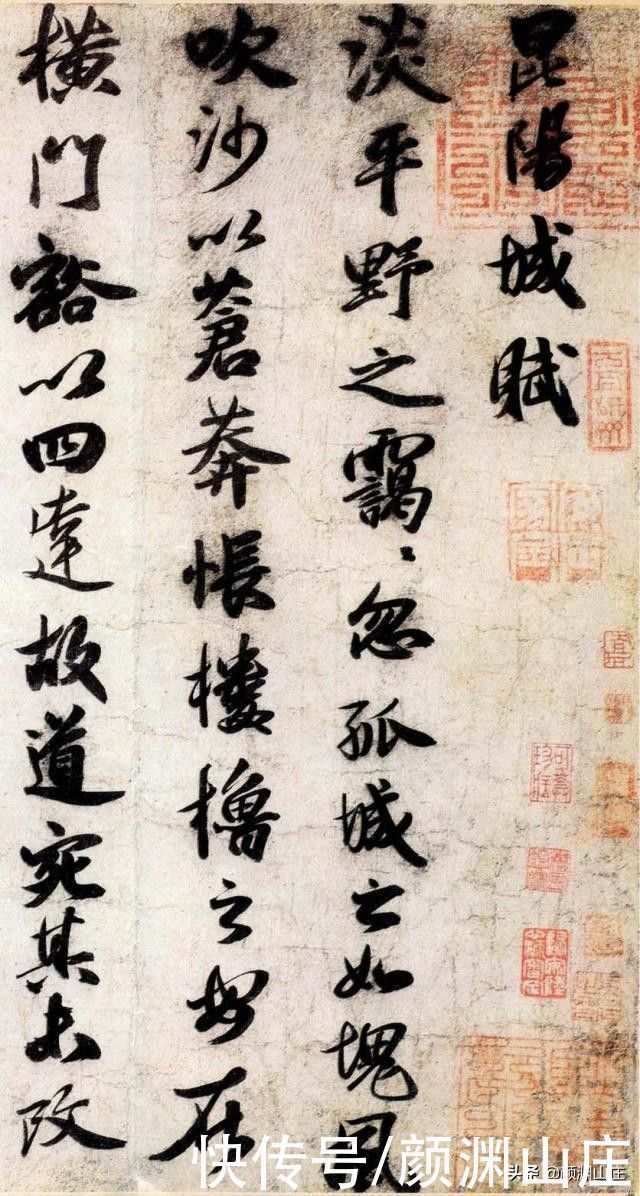 昆陽城賦
淡平野之靄〻忽孤城之如塊風
吹沙以蒼莽悵樓櫓之安在
橫門豁以四達故道宛其未改
快传号/颜渊山庄
头条 @颜渊山庄